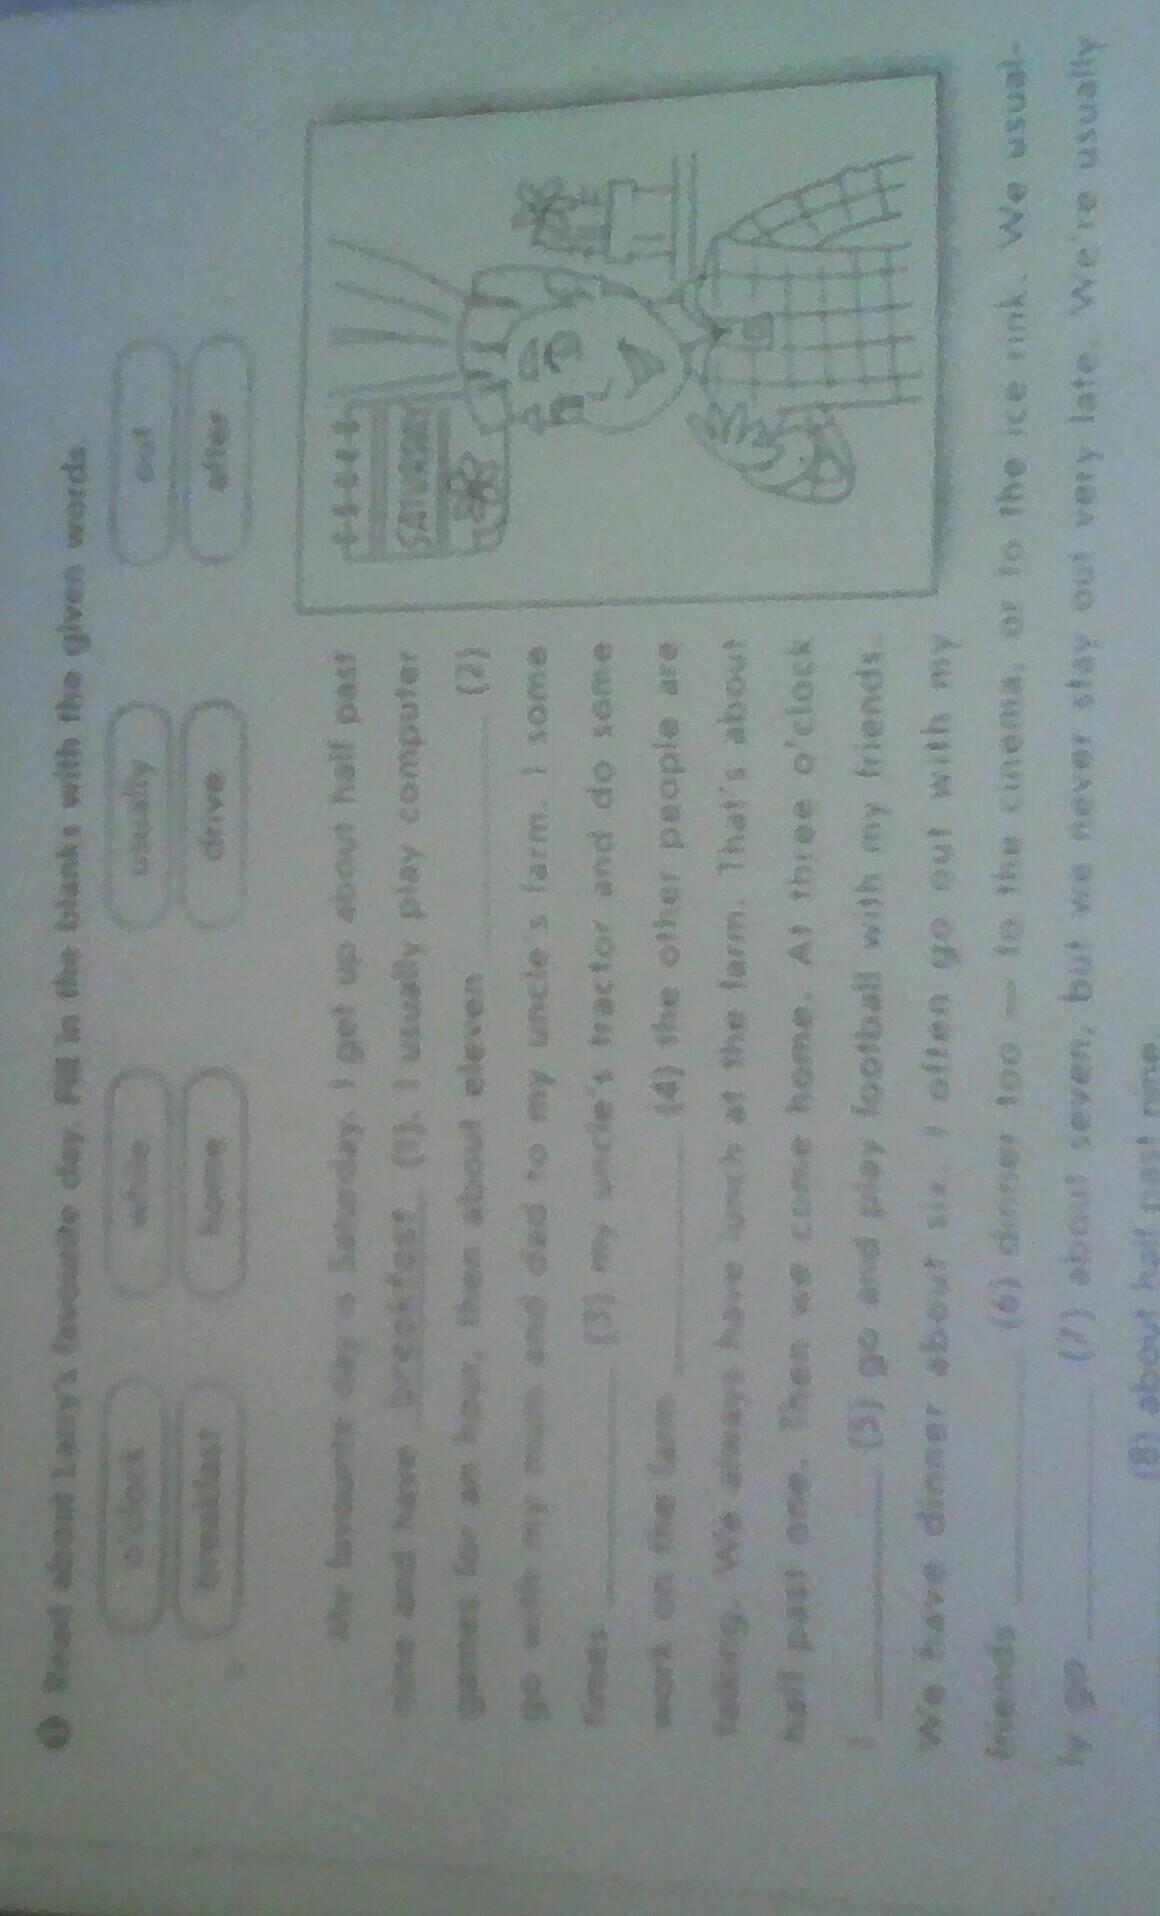 1 Read about Larry's favourite day. Fill in the blanks with the given words
o'clock while usually out
breakfast home drive after
My favourite day is Saturday. I get up about half past
nine and have breakfast (1). I usually play computer
games for an hour, then about eleven ______ (2)
go with my mum and dad to my uncle's farm. I some
times ______ (3) my uncle's tractor and do some
work on the farm ______ (4) the other people are
talking. We always have lunch at the farm. That's about
half past one. Then we come home. At three o'clock
I ______ (5) go and play football with my friends.
We have dinner about six. I often go out with my
friends ______ (6) dinner too — to the cinema, or to the ice rink. We usual-
ly go ______ (7) about seven, but we never stay out very late. We're usually
(8) about half past nine.
SATURDAY